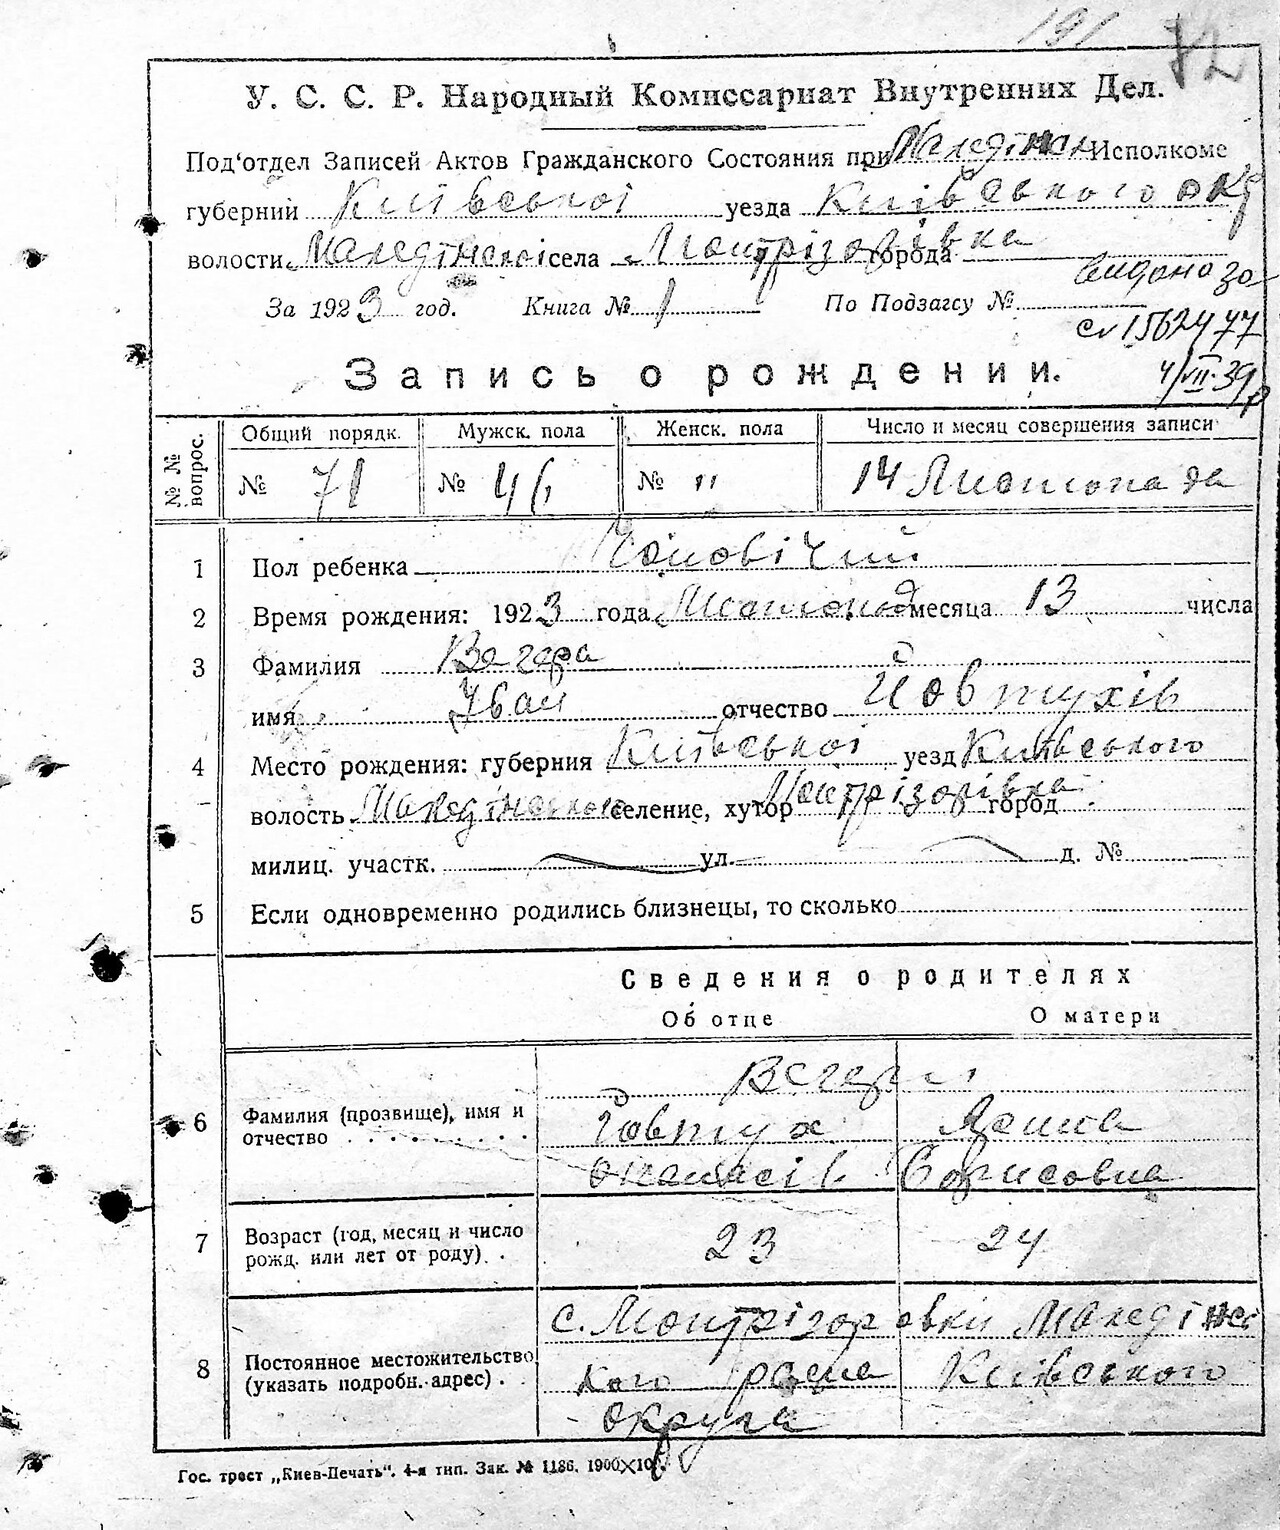 191 72
У. С. С. Р. Народный Комиссариат Внутренних Дел.
Под'отдел Записей Актов Гражданского Состояния при Македінск Исполкоме
губерний Київської уезда Київського окр
волости Македінскоі села Мотрізорівка города
видано за
За 1923 год. Книга № 1 По Подзагсу №
св 1562477
4/VII-39р
Запись о рождении.
№ № вопрос. Общий порядк. Мужск. пола Женск. пола Число и месяц совершения записи
№ 71 № 41 № " 14 Листопада
1 Пол ребенка Чоловічий
2 Время рождения: 1923 года Листопад месяца 13 числа
3 Фамилия Вегера
имя Іван отчество Йовтухів
4 Место рождения: губерния Київської уезд Київського
волость Македінської селение, хутор Мотрізорівка город
милиц. участк. ул. д. №
5 Если одновременно родились близнецы, то сколько
Сведения о родителях
Об отце О матери
Вегери
6 Фамилия (прозвище), имя и отчество
Йовтух
Опанасів Борисовна
7 Возраст (год, месяц и число рожд. или лет от роду). 23 24
8 Постоянное местожительство (указать подробн. адрес).
с. Мотрізоровки Македінсь
кого района Київського
округа
Гос. трест „Киев-Печать". 4-я тип. Зак. № 1186. 1900×10